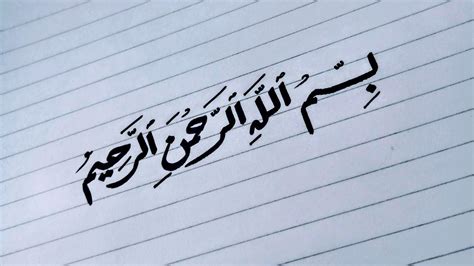 بِسّمُ ٱللَّهِ ٱلرَّحْمٰنِ ٱلرَّحِيمُ